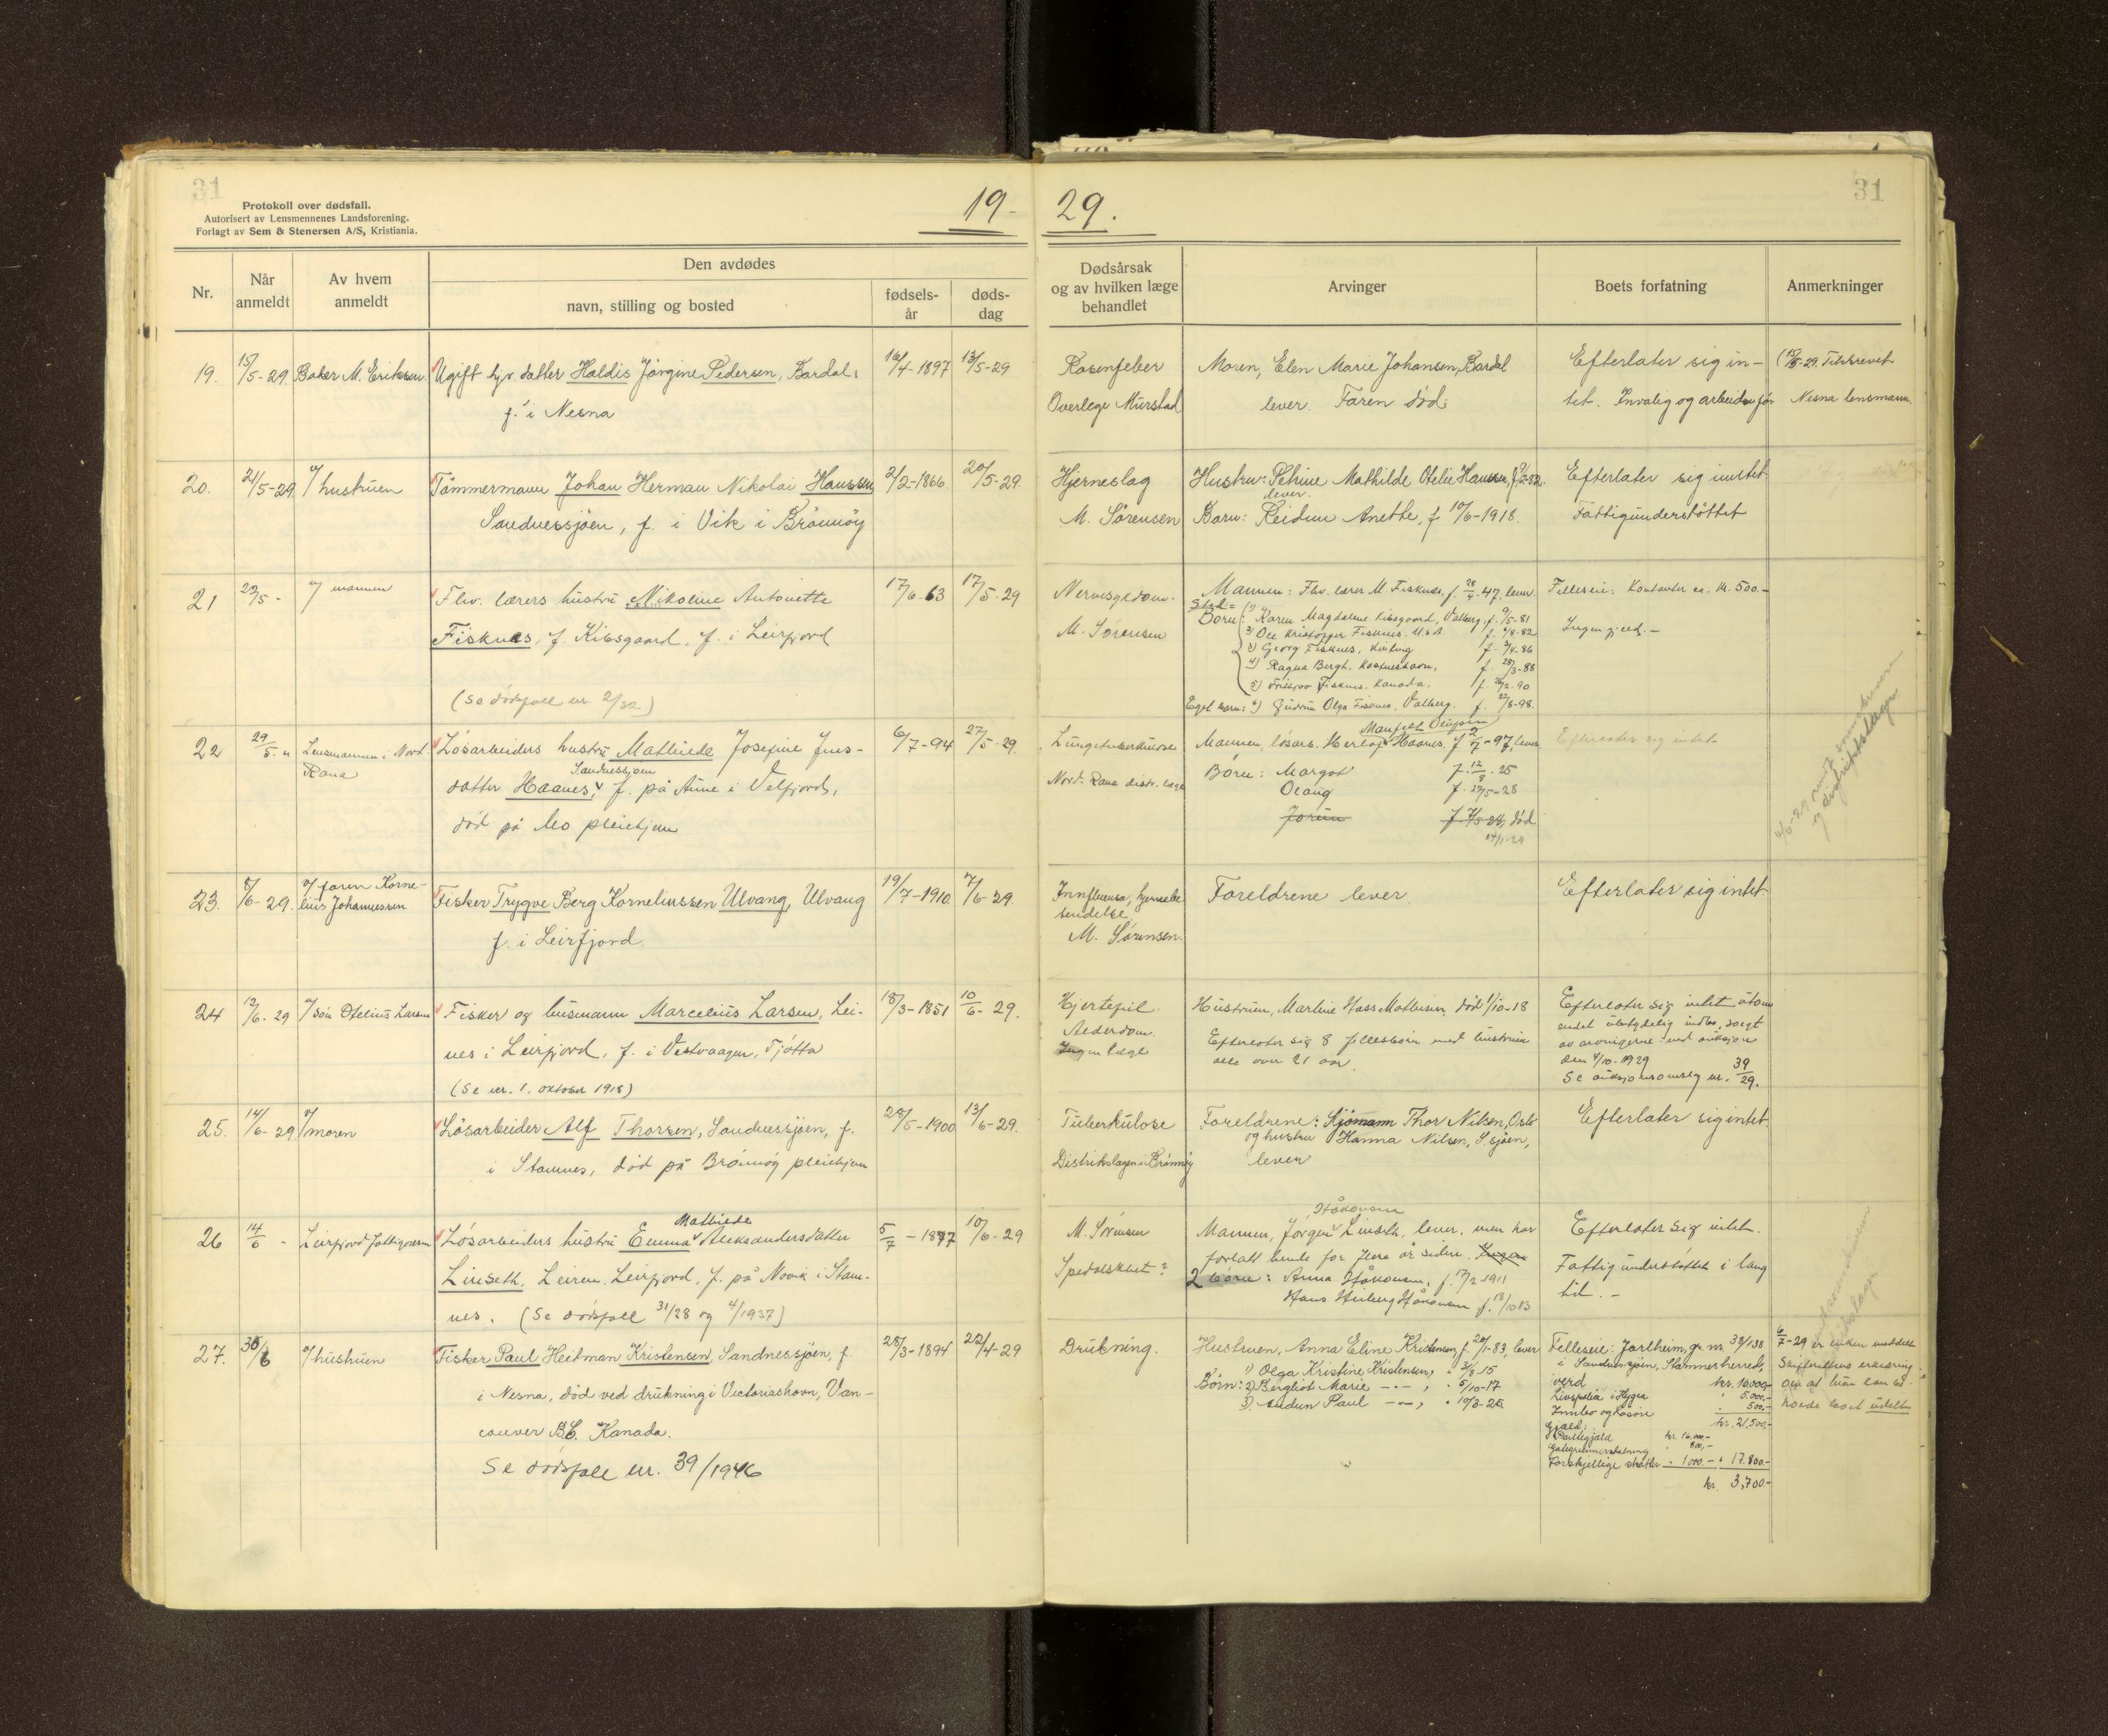 31
Protokoll over dødsfall.
Autorisert av Lensmennenes Landsforening.
Forlagt av Sem & Stenersen A/S, Kristiania.
19-
29.
31
Nr.
Når anmeldt
Av hvem anmeldt
Den avdødes
navn, stilling og bosted
fødsels-år
døds-dag
Dødsårsak og av hvilken læge behandlet
Arvinger
Boets forfatning
Anmerkninger
19. 15/5-29 Baker M. Eriksen. Ugift tj. datter Haldis Jörgine Pedersen, Bardal, 16/4-1897 13/5-29
f. i Nesna
Rosenfeber
Overlege Murstad
Moren, Elen Marie Johansen, Bardal
lever. Faren död.
Efterlater sig in-
tet. Invalig og
15/5-29. Tilskrevet
Nesna lensmann.
20. 21/5-29 v/ hustruen Tömmermann Johan Herman Nikolai Hanssen 2/2-1866 20/5-29
Sandnessjöen, f. i Vik i Brönnöy
Hjerneslag
M. Sörensen
Hustru: Petrine Mathilde Otelie Hanssen,
lever.
Barn: Reidun Anette, f 10/6-1918.
Efterlater sig inntet
Fattigunderstöttet
21 23/5- v/ mannen Fhv. lærers hustru Nikoline Antonette 17/6-63 17/5-29
Fisknes, f. Kibsgaard, f. i Leirfjord
(Se dödsfall nr. 2/32)
Nervesygdom.
M. Sörensen
Mannen: Fhv. lærer M. Fisknes, f. 28/4-47, lever.
Börn: 1) Karen Magdalene Kibsgaard, Valberg, f. 9/5-81
2) Ole Kristoffer Fisknes, U.S.A f. 4/8-82
3) Georg Fisknes, f. 3/4-86
4) Ragna Bergh, f. 28/3-88
5) Fritjov Fisknes, Kanada. f. 26/2-90
Eget barn: 6) Gudrun Olga Fisknes, Valberg. f. 22/8-98.
Felleseie: Kontanter ca. kr. 500.-
Ingen gjeld.-
22 29/5-" Lensmannen i Nord-Rana Lösarbeiders hustru Mathilde Josefine Jens- 6/7-94 27/5-29.
Sandnessjöen
datter Haanes, f. på Aune i Velfjord,
död på Mo pleiehjem
Lungetuberkulose
Nord-Rana distr. læge
Mannen, lösarb. Herlof Haanes, f. -97, lever.
Börn: Margot f. 12/8-25
Olaug f. 25/5-28
Jorun död
Efterlater sig intet
23. 8/6-29. v/ faren Korne-
lius Johannessen Fisker Trygve Berg Korneliussen Ulvang, Ulvang 19/7-1910 7/6-29.
f. i Leirfjord.
Innfluensa, hjernebe
tendelse
M. Sörensen.
Foreldrene lever.
Efterlater sig intet
24 12/6-29 v/ sön Otelius Larsen Fisker og husmann Marcelius Larsen, Lei- 18/3-1851 10/6-29.
nes i Leirfjord, f. i Vestvaagen, Tjötta
(Se nr. 1. oktober 1918)
Hjertefeil.
Alderdom.
Ingen læge
Hustruen, Martine Hass Mathisen, död 1/10-18
Efterlater sig 8 fellesbörn med hustruen
alle over 21 aar.
Efterlater sig intet utenom
endel ubetydelig indbo, solgt
av arvingerne ved auksjon
den 4/10-1929
Se auksjonsomslag nr. 39/29.
25. 14/6-29 v/ moren Lösarbeider Alf Thorsen, Sandnessjöen, f. 28/5-1900 13/6-29.
i Stamnes, död på Brönnöy pleiehjem
Tuberkulose
Distriktslægen i Brönnöy
Foreldrene: Sjömann Thor Nilsen, Oslo
og hustru Hanna Nilsen, S.sjöen,
lever
Efterlater sig intet
26 14/6 - Leirfjord fattigvesen Lösarbeiders hustru Emma Mathilde Aleksandersdatter 5/7-1877 10/6-29
Linseth, Leiren, Leirfjord, f. på Novik i Stam-
nes. (Se dödsfall 31/28 og 4/1937)
M. Sörensen
Spedalskhet?
Håkonsen
Mannen, Jörgen Linseth, lever, men har
forlatt hende for flere år siden. Ingen
2 börn: Anna Håkonsen, f. 17/2-1911
Hans Håkonsen f. 18/10 13
Efterlater sig intet.
Fattigunderstöttet i lang
tid. -
27. 30/6 v/ hustruen Fisker Paul Heitman Kristensen, Sandnessjöen, f. 28/3-1894 22/4-29
i Nesna, död ved drukning i Victoriahavn, Van-
couver B.C. Kanada.
Se dödsfall nr. 39/1946
Drukning.
Hustruen, Anna Eline Kristensen, f. 20/1-83, lever
Börn: 1) Olga Kristine Kristensen, " 3/8 15
2) Bergliot Marie -"-, " 5/10-17
3) Audun Paul -"-, " 10/3-26
Felleseie: Jarlheim, gr. nr. 38/138
i Sandnessjöen, Stamnes herred,
verd kr. 16000,-
Livspolise i Hygea " 5.000,-
Innbo og lösöre " 500,-
kr. 21.500,-
Gjeld:
Pantegjeld kr. 16.000,-
" 800,-
Forskjellige skatter " 1000.- " 17.800-
kr. 3,700-
6/7-29 er enken meddelt
Skifterettens erklæring
om at hun kan be-
holde boet udelt